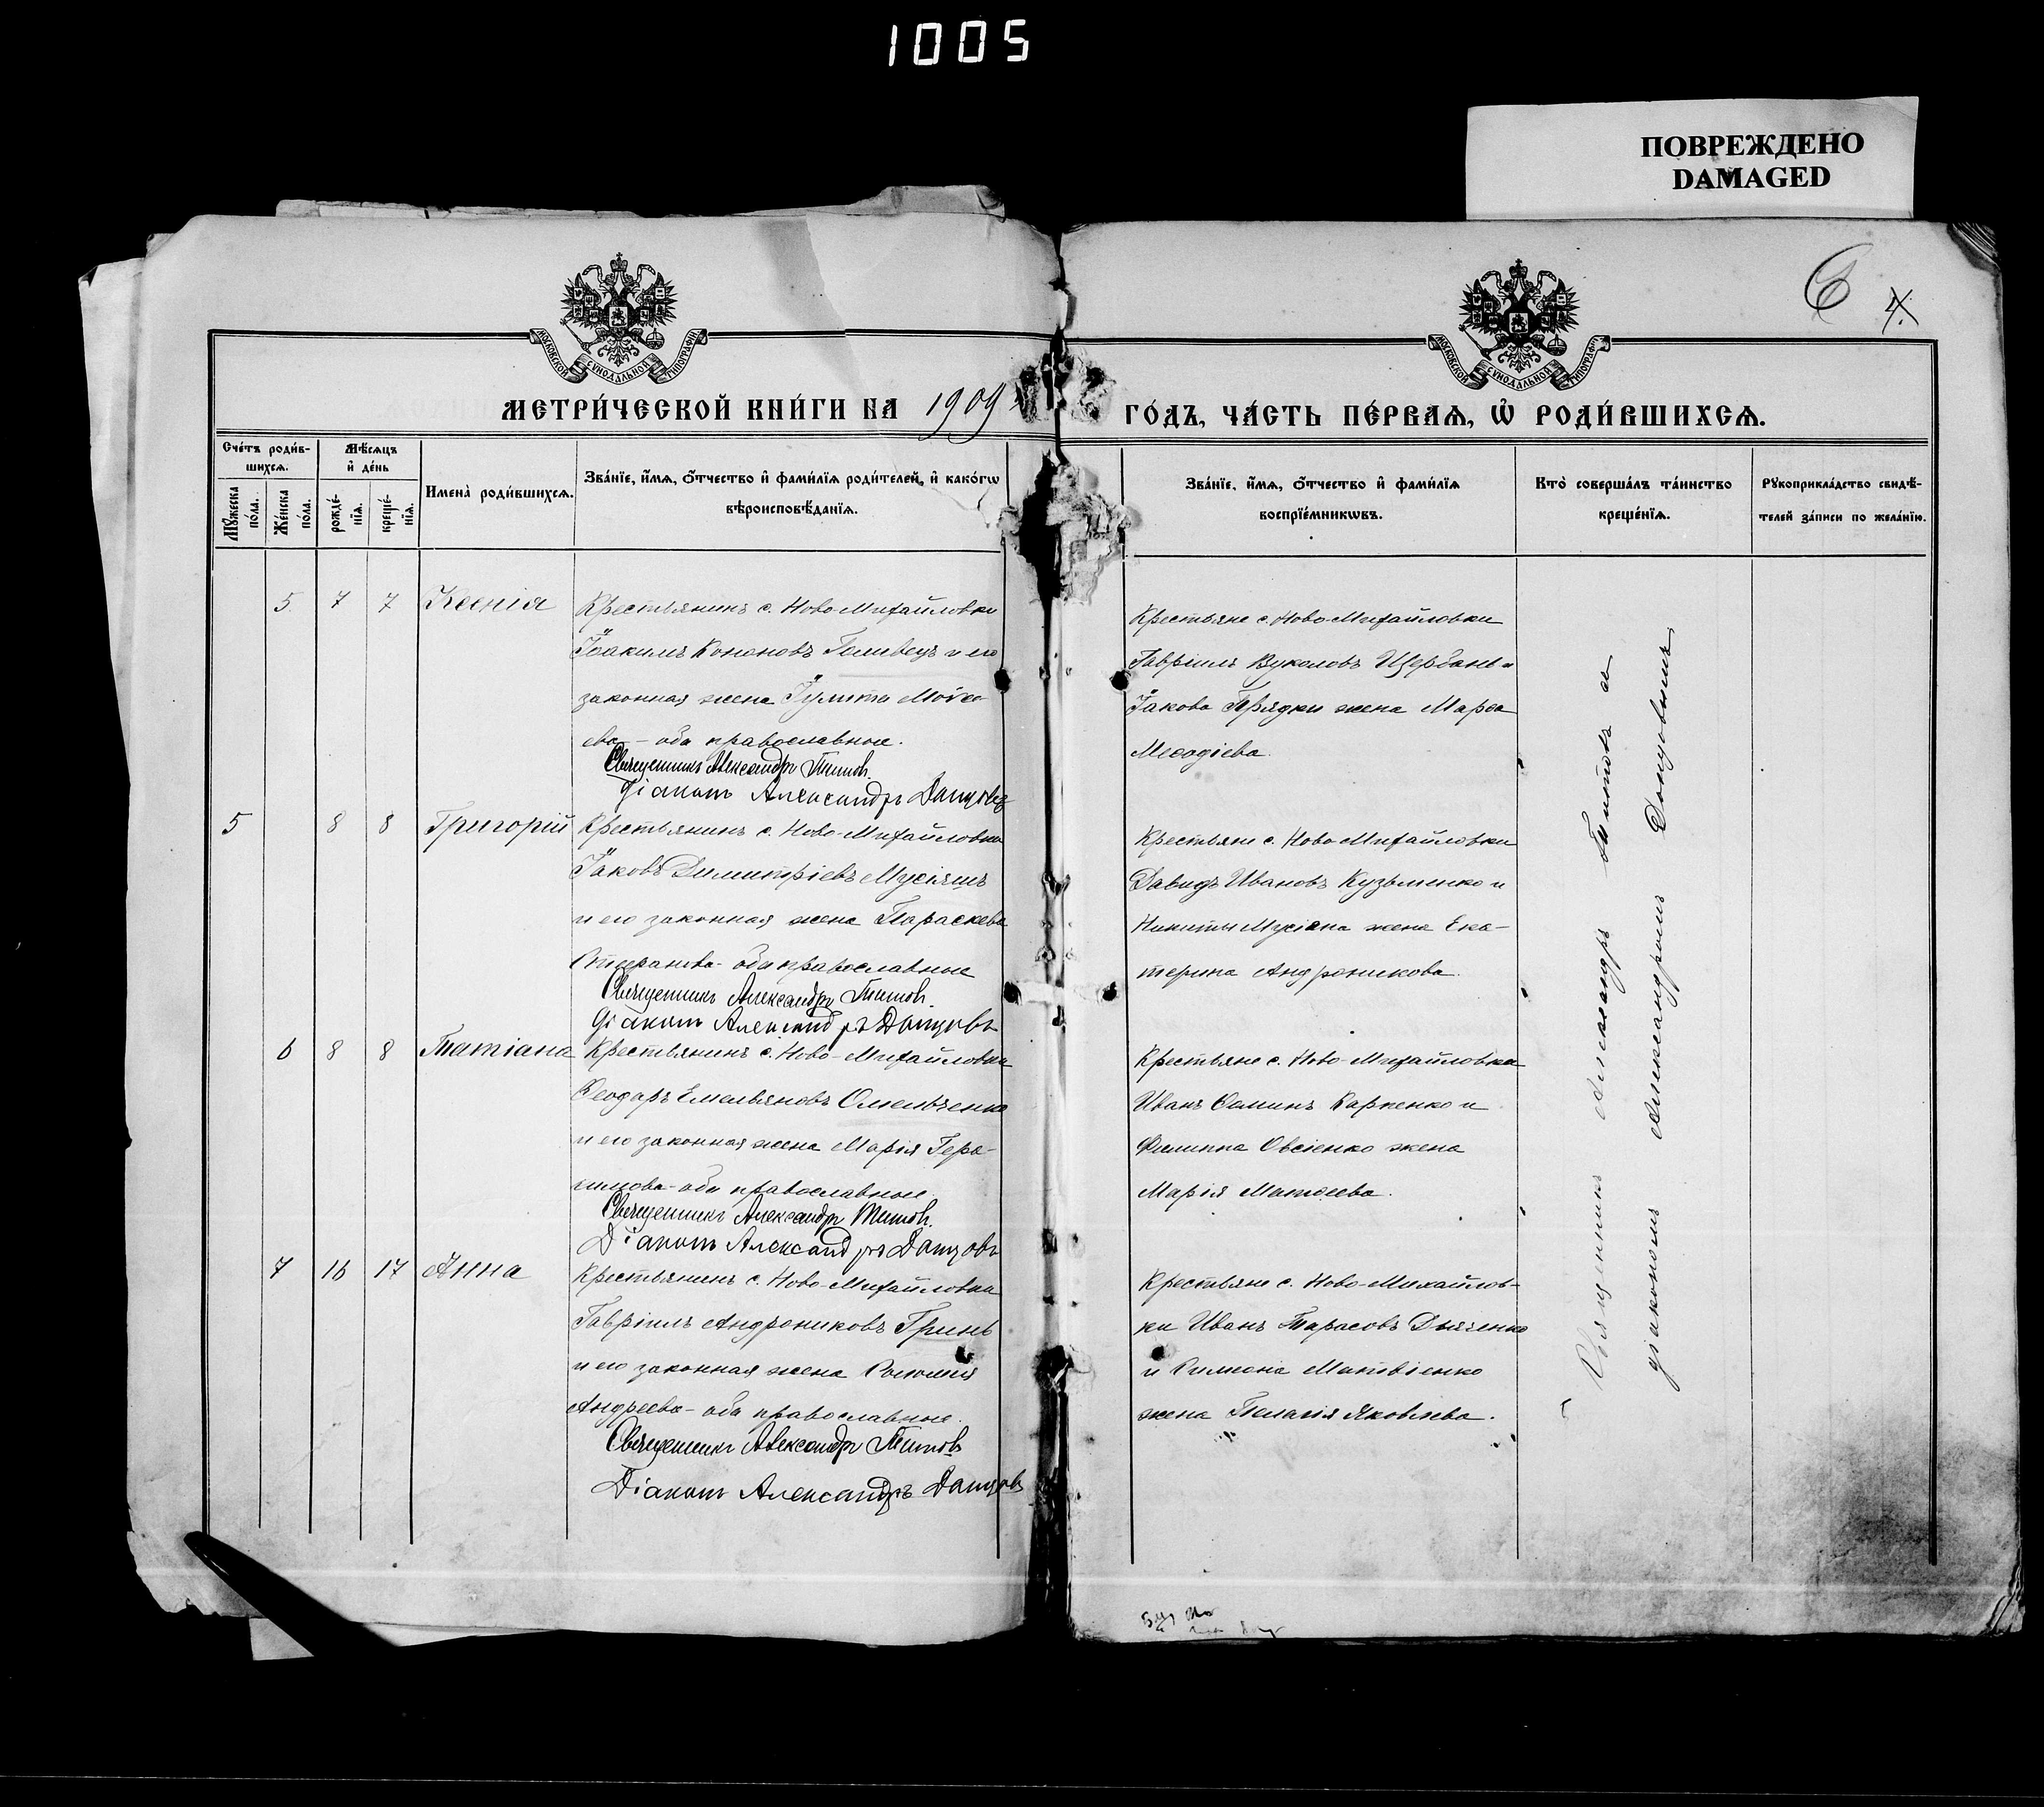 1005
ПОВРЕЖДЕНО
DAMAGED
6 4.
МОСКОВСКОЙ СѴНОДАЛЬНОЙ ТИПОГРАФІИ
МОСКОВСКОЙ СѴНОДАЛЬНОЙ ТИПОГРАФІИ
МЕТРИ́ЧЕСКОЙ КНИ́ГИ НА 1909
ГО́ДЪ, ЧА́СТЬ ПЕ́РВАѦ, Ѡ҆ РОДИ́ВШИХСѦ.
Сче́тъ роди́в-
шихсѧ.
Мꙋ́жеска по́ла.
Же́нска по́ла.
Мѣ́сѧцъ
и҆ де́нь
рожде́-
нїѧ.
креще́-
нїѧ.
Имена̀ роди́вшихсѧ.
Зва́нїе, и҆́мѧ, ѻ҆́тчество и҆ фами́лїѧ роди́телей, и҆ како́гѡ
вѣроисповѣ́данїѧ.
Зва́нїе, и҆́мѧ, ѻ҆́тчество и҆ фами́лїѧ
воспрїе́мникѡвъ.
Кто̀ соверша́лъ та́инство
креще́нїѧ.
Рꙋкоприкла́дство свидѣ́-
телей за́писи по жела́нїю.
5 7 7 Ксенія
Крестьянинъ с. Ново-Михайловки
Іоакимъ Кононовъ Голивецъ и его
законная жена Іулита Моѵсе-
ева - оба православные.
Священникъ Александръ Титовъ.
Діаконъ Александръ Донцовъ
Крестьяне с. Ново-Михайловки
Гавріилъ Вуколовъ Щербань и
Іакова Прядки жена Марѳа
Меѳодіева.
5 8 8 Григорій
Крестьянинъ с. Ново-Михайловки
Іаковъ Димитріевъ Мусіяшъ
и его законная жена Параскева
православные
Священникъ Александръ Титовъ.
Діаконъ Александръ Донцовъ
Крестьяне с. Ново-Михайловки
Давидъ Ивановъ Кузьменко и
Никиты жена Ека-
терина Андроникова.
6 8 8 Татіана
Крестьянинъ с. Ново-Михайловки
Ѳеодоръ Емельяновъ Омельченко
и его законная жена Марія Гера-
симова - оба православные
Священникъ Александръ Титовъ.
Діаконъ Александръ Донцовъ
Крестьяне с. Ново-Михайловки
Иванъ Ѳоминъ Карпенко и
Филиппа Овсіенко жена
Марія Матѳеева.
7 16 17 Анна
Крестьянинъ с. Ново-Михайловки
Гавріилъ Андрониковъ Гринь
и его законная жена
Андреева - оба православные.
Священникъ Александръ Титовъ
Діаконъ Александръ Донцовъ
Крестьяне с. Ново-Михайлов-
ки Иванъ Тарасовъ Дьяченко
и Матвіенко
жена Пелагія Яковлева.
Священникъ Александръ Титовъ съ
діакономъ Александромъ Донцовымъ